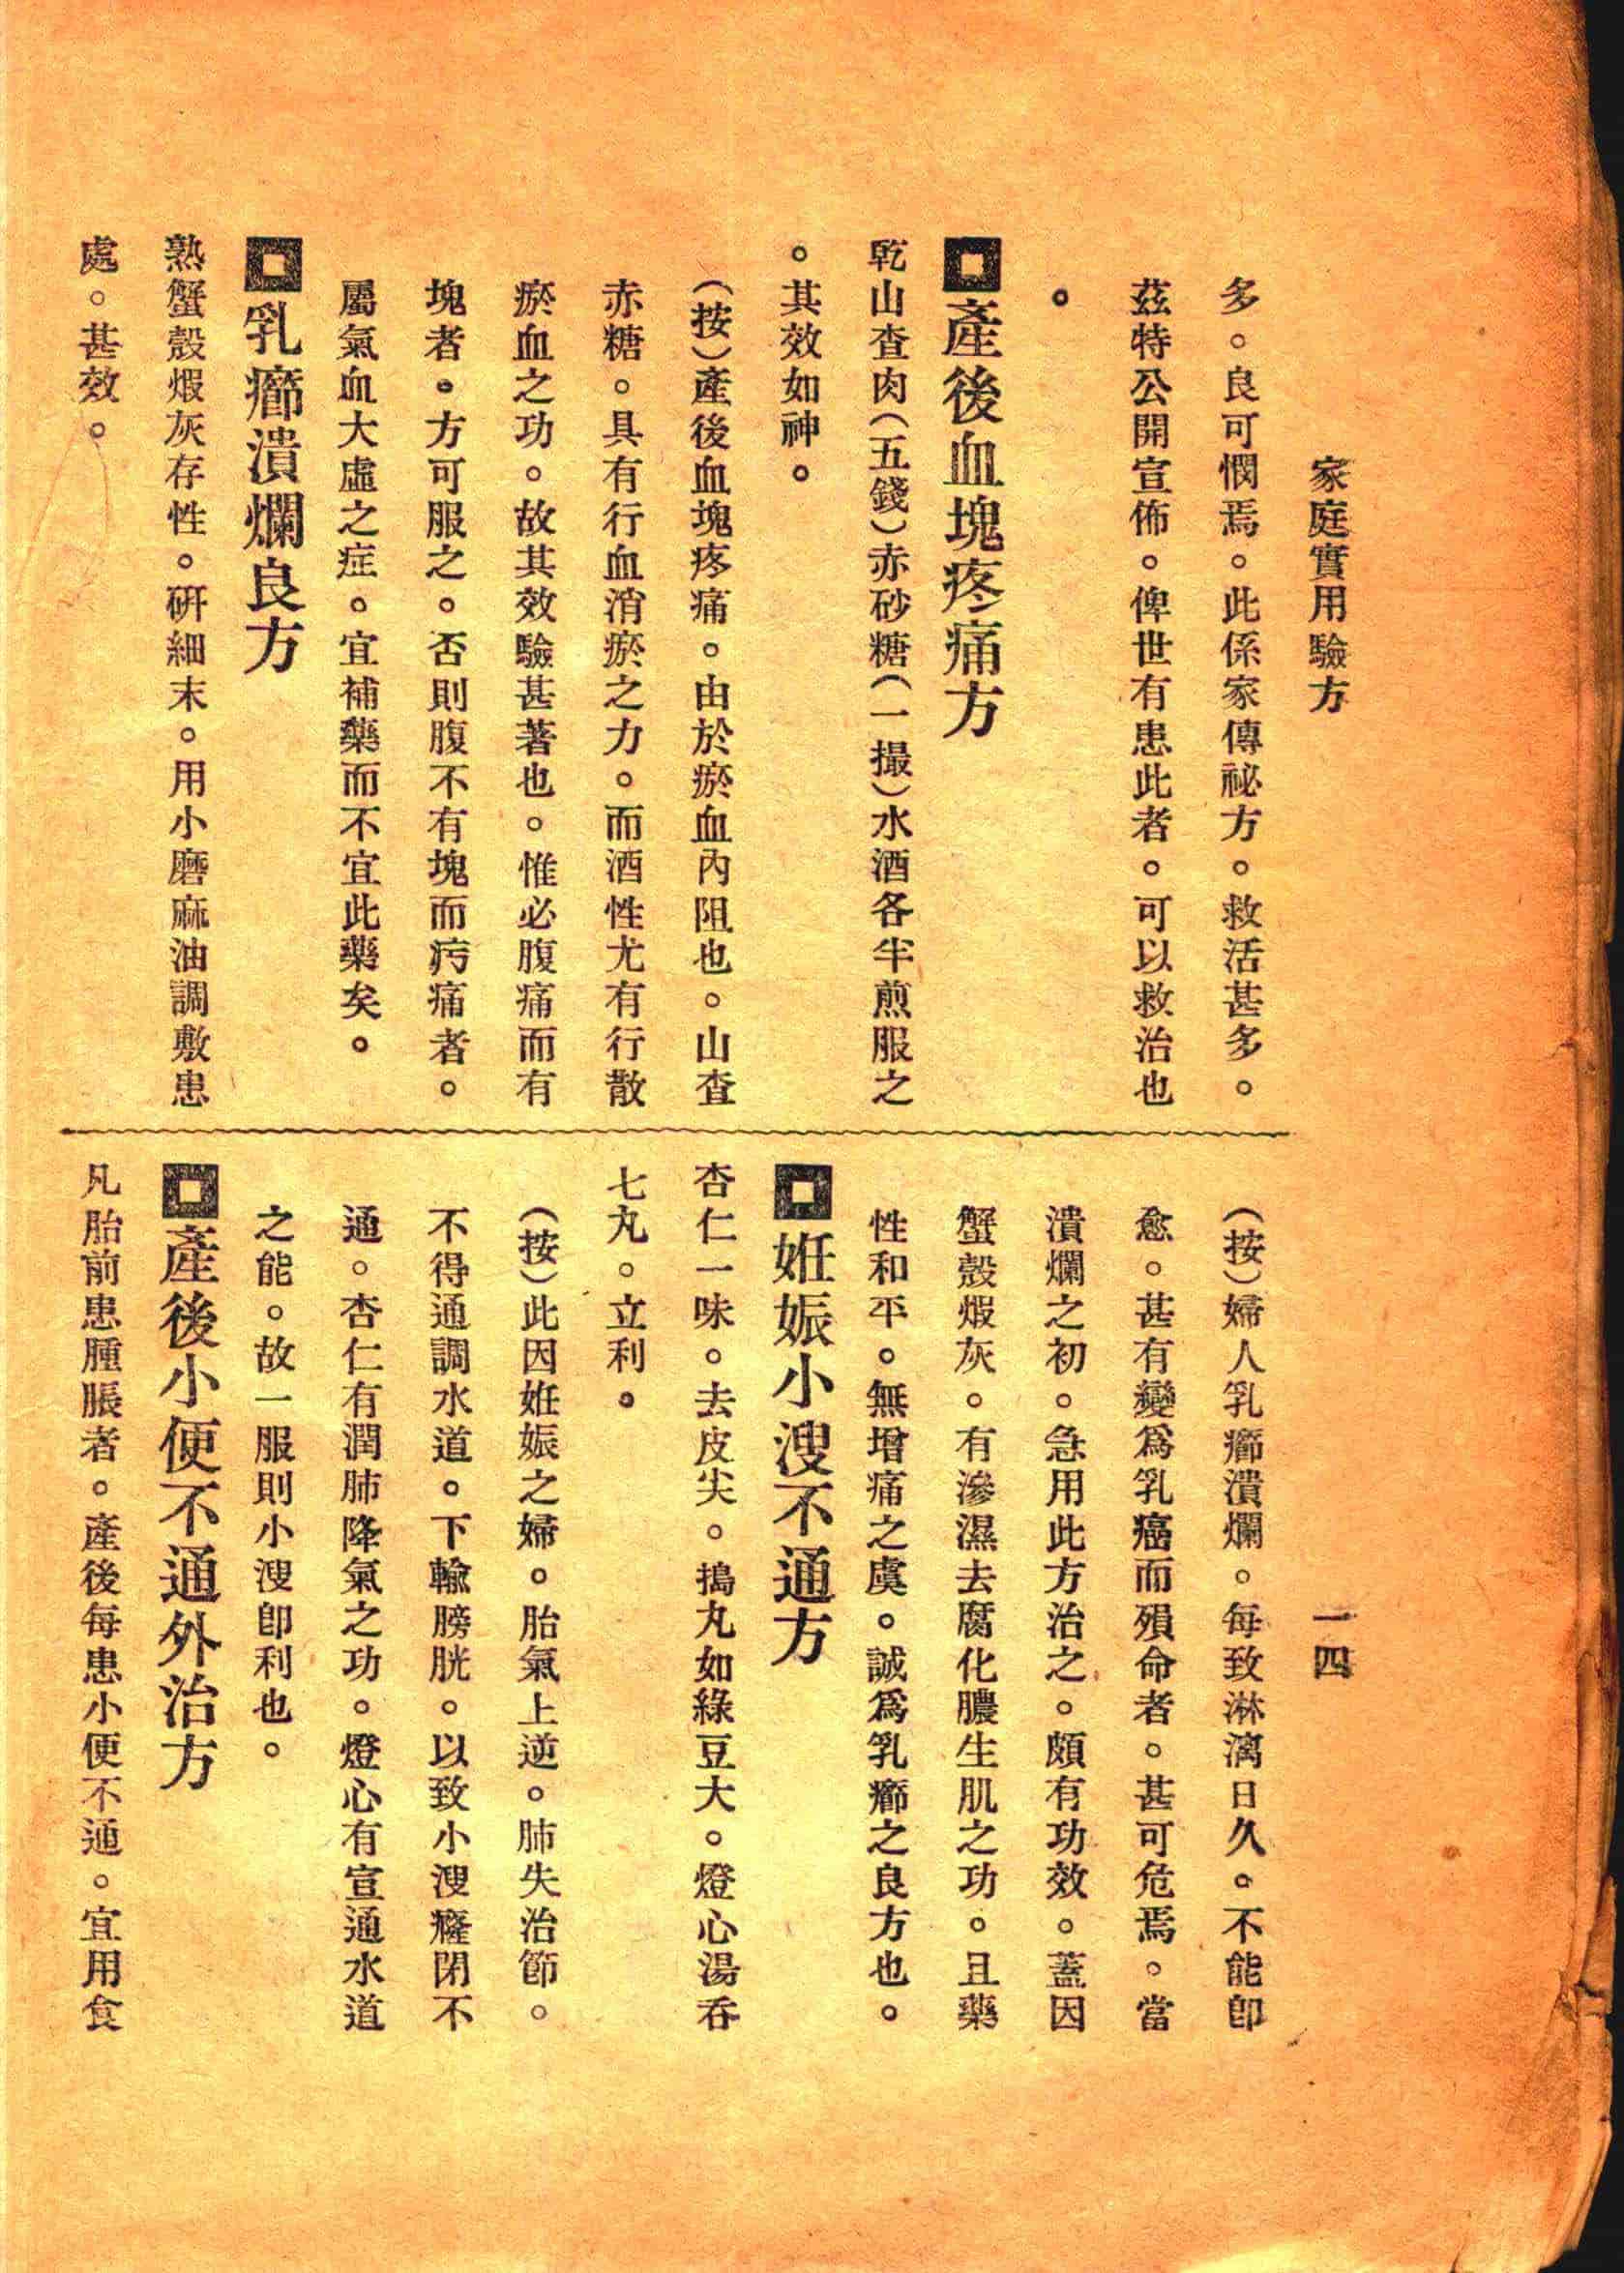 家庭實用驗方
一四
多。良可憫焉。此係家傳祕方。救活甚多。
茲特公開宣佈。俾世有患此者。可以救治也
。
產後血塊疼痛方
乾山查肉（五錢）赤砂糖（一撮）水酒各半煎服之
。其效如神。
（按）產後血塊疼痛。由於瘀血內阻也。山查
赤糖。具有行血消瘀之力。而酒性尤有行散
瘀血之功。故其效驗甚著也。惟必腹痛而有
塊者。方可服之。否則腹不有塊而㽲痛者。
屬氣血大虛之症。宜補藥而不宜此藥矣。
乳癤潰爛良方
熟蟹殼煆灰存性。研細末。用小磨麻油調敷患
處。甚效。
（按）婦人乳癤潰爛。每致淋漓日久。不能卽
愈。甚有變爲乳癌而殞命者。甚可危焉。當
潰爛之初。急用此方治之。頗有功效。蓋因
蟹殼煆灰。有滲濕去腐化膿生肌之功。且藥
性和平。無增痛之虞。誠爲乳癤之良方也。
姙娠小溲不通方
杏仁一味。去皮尖。搗丸如綠豆大。燈心湯吞
七丸。立利。
（按）此因姙娠之婦。胎氣上逆。肺失治節。
不得通調水道。下輸膀胱。以致小溲癃閉不
通。杏仁有潤肺降氣之功。燈心有宣通水道
之能。故一服則小溲卽利也。
產後小便不通外治方
凡胎前患腫脹者。產後每患小便不通。宜用食